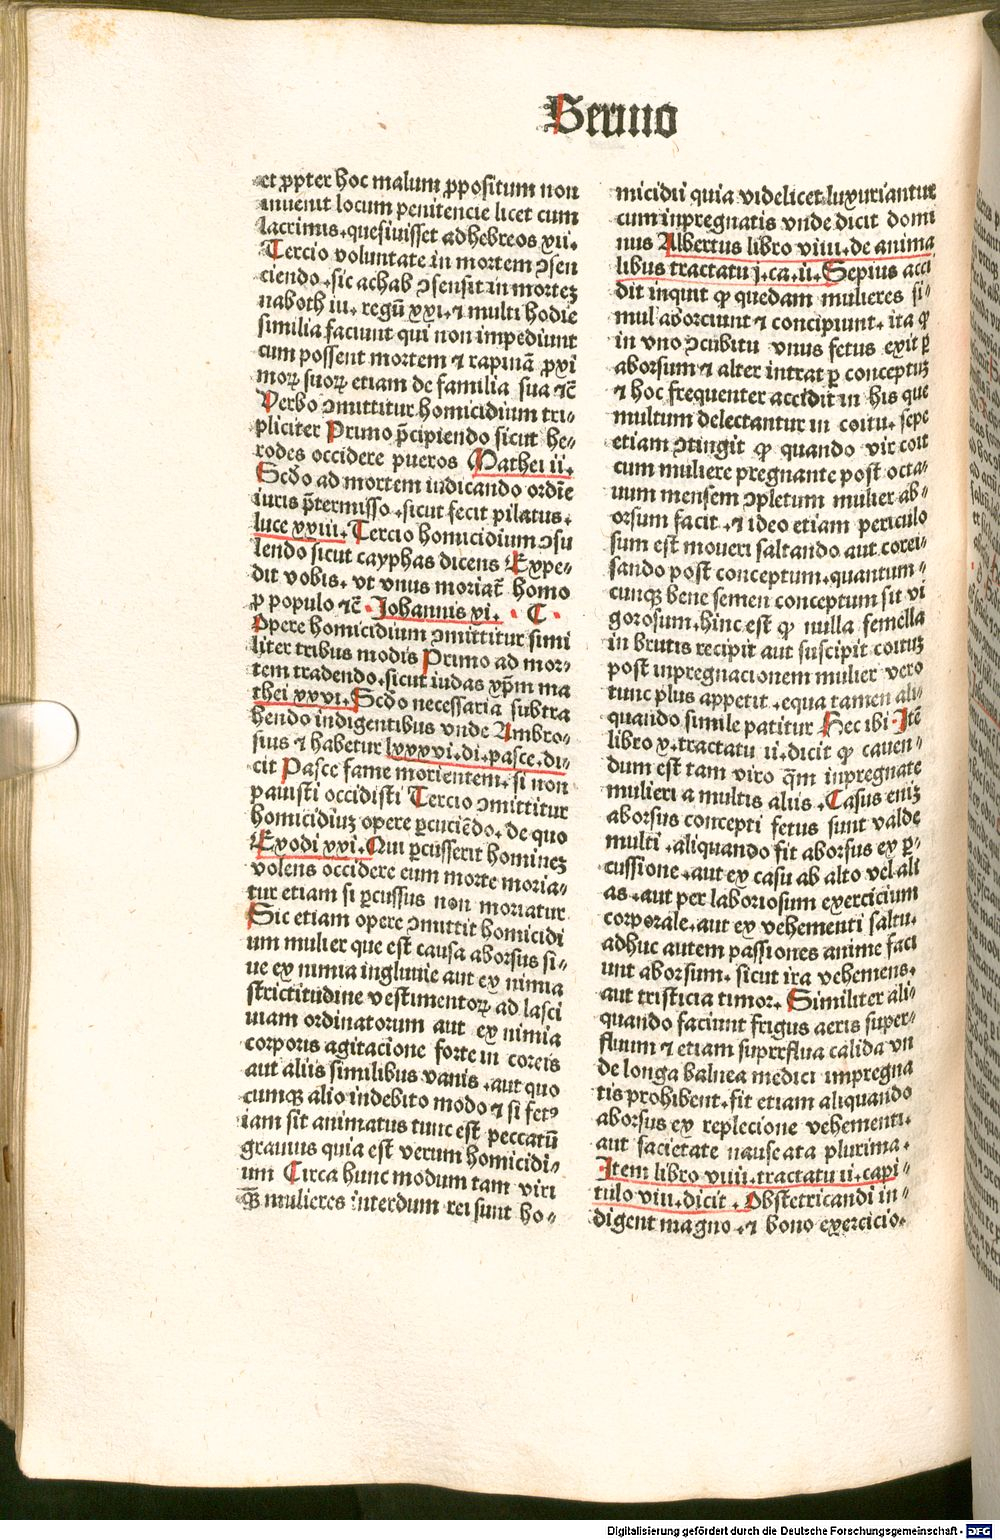 Sermo
et ꝓpter hoc malum ꝓpositum non
inuenit locum penitencie licet cum
lacrimis. quesiuisset ad hebreos xij.
Tercio voluntate in mortem ↄsen
ciendo. sic achab ↄsensit in morteꝫ
naboth iij. regū xxi. ⁊ multi hodie
similia faciunt qui non impediunt
cum possent mortem ⁊ rapinā ꝓxi
moꝝ suoꝝ etiam de familia sua ⁊c̄
Verbo ↄmittitur homicidium tri⸗
pliciter Primo p̄cipiendo sicut he⸗
rodes occidere pueros Mathei ii.
Scd̄o ad mortem iudicando ordīe
iuris p̄termisso. sicut fecit pilatus.
luce xxiii. Tercio homicidium ↄsu
lendo sicut cayphas dicens Expe⸗
dit vobis. vt vnus moriat̄ homo
ꝓ populo ⁊c̄. Johannis xi. C
Opere homicidium ↄmittitur simi
liter tribus modis Primo ad mor⸗
tem tradendo. sicut iudas xp̄m ma
thei xxvi. Scd̄o necessaria subtra
hendo indigentibus vnde Ambro⸗
sius ⁊ habetur lxxxvi. di. pasce. di⸗
cit Pasce fame morientem. si non
pauisti occidisti Tercio ↄmittitur
homicidiuꝫ opere ꝑcuciēdo. de quo
Exodi xxi. Qui ꝑcusserit homineꝫ
volens occidere eum morte moria⸗
tur etiam si ꝑcussus non moriatur
Sic etiam opere ↄmittit homicidi
um mulier que est causa aborsus si⸗
ue ex nimia ingluuie aut ex nimia
strictitudine vestimentoꝝ ad lasci
uiam ordinatorum aut ex nimia
corporis agitacione forte in coreis
aut aliis similibus vanis. aut quo
cumqꝫ alio indebito modo ⁊ si fetꝰ
iam sit animatus tunc est peccatū
grauius quia est verum homicidi⸗
um Circa hunc modum tam viri
qꝫ mulieres interdum rei sunt ho⸗
micidii quia videlicet luxuriantur
cum inpregnatis vnde dicit domi
nus Albertus libro viiii. de anima
libus tractatu j. ca. ii. Sepius acci
dit inquit ꝙ quedam mulieres si⸗
mul aborciunt ⁊ concipiunt. ita ꝙ
in vno ↄcubitu vnus fetus exit ꝑ
aborsum ⁊ alter intrat ꝑ conceptuꝫ
⁊ hoc frequenter accidit in his que
multum delectantur in coitu. sepe
etiam ↄtingit ꝙ quando vir coit
cum muliere pregnante post octa⸗
uum mensem ↄpletum mulier ab⸗
orsum facit. ⁊ ideo etiam periculo
sum est moueri saltando aut corei⸗
sando post conceptum. quantum⸗
cunqꝫ bene semen conceptum sit vi
gorosum. hinc est ꝙ nulla femella
in brutis recipit aut suscipit coituꝫ
post inpregnacionem mulier vero
tunc plus appetit. equa tamen ali⸗
quando simile patitur Hec ibi. Itē
libro x. tractatu ii. dicit ꝙ cauen⸗
dum est tam viro q̄m inpregnate
mulieri a multis aliis. Casus eniꝫ
aborsus concepti fetus sunt valde
multi. aliquando fit aborsus ex ꝑ⸗
cussione. aut ex casu ab alto vel ali
as. aut per laboriosum exercicium
corporale. aut ex vehementi saltu.
adhuc autem passiones anime faci
unt aborsum. sicut ira vehemens.
aut tristicia timor. Similiter ali⸗
quando faciunt frigus aeris super⸗
fluum ⁊ etiam suprrflua calida vn
de longa balnea medici impregna
tis prohibent. fit etiam aliquando
aborsus ex replecione vehementi.
aut facietate nauseata plurima.
Item libro viiii. tractatu ii. capi⸗
tulo viii. dicit. Obstetricandi in⸗
digent magno. ⁊ bono exercicio.
Digitalisierung gefördert durch die Deutsche Forschungsgemeinschaft - DFG